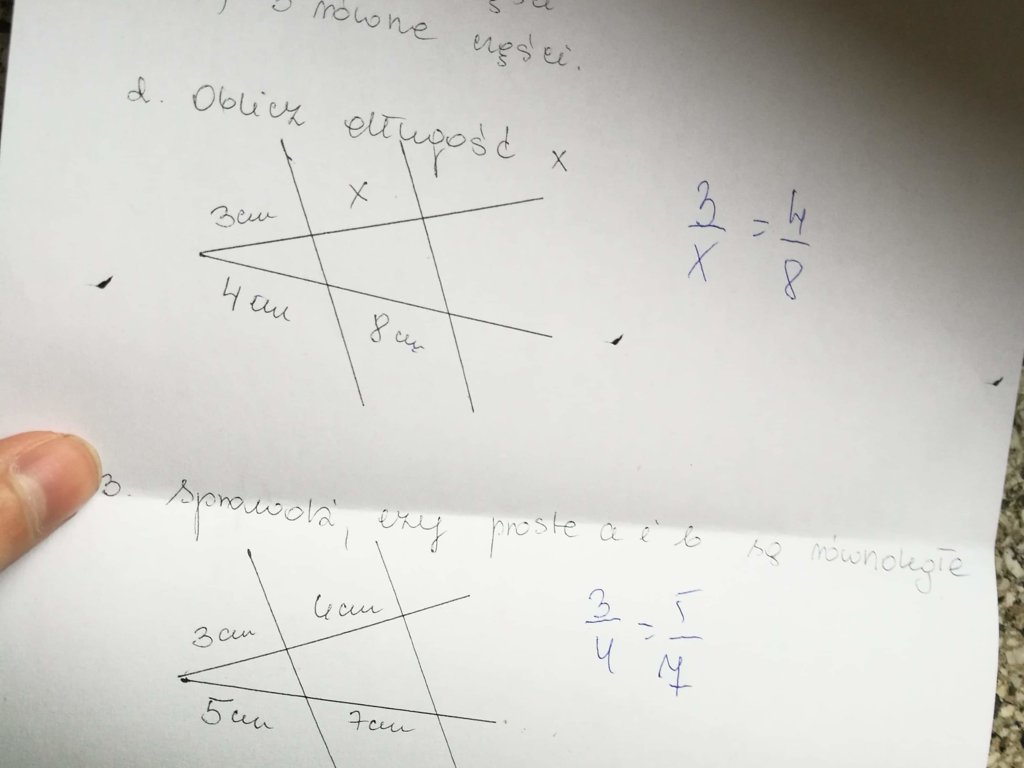 3 równe części.
2. Oblicz długość x
3cm
x
4cm
8cm
3/x = 4/8
3. Sprawdź, czy proste a i b są równoległe
3cm
4cm
5cm
7cm
3/4 = 5/7